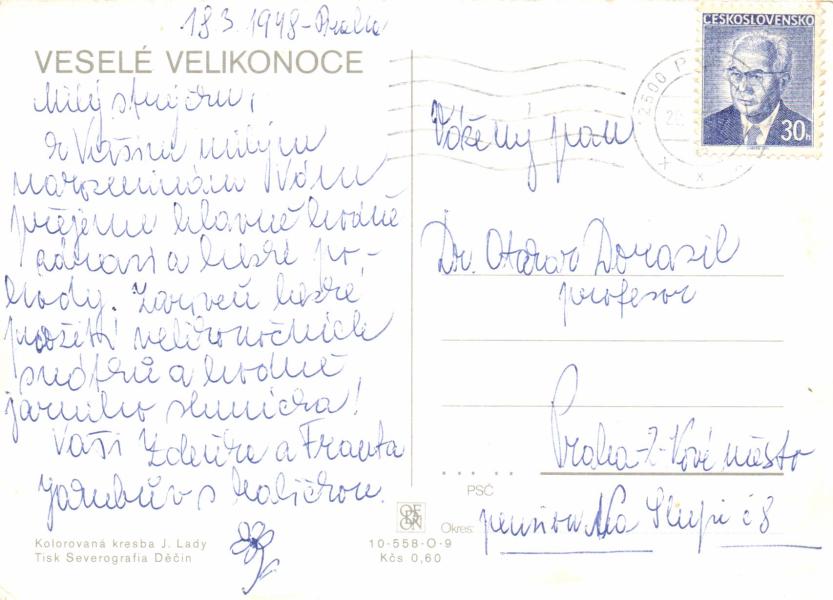 18.3.1978 - Praha
VESELÉ VELIKONOCE
Milý strýčku,
k Vašim milým
narozeninám Vám
přejeme hlavně hodně
zdraví a hezké po-
hody. Zároveň hezké
prožití velikonočních
svátků a hodně
jarního sluníčka!
Vaši Zdeňka a Franta
s holičkou.
Kolorovaná kresba J. Lady
Tisk Severografia Děčín
ČESKOSLOVENSKO
30h
Vážený pan
Dr. Otakar Dorazil
profesor
Praha-2-Nové město
PSČ
Okres:
penzion Na Slupi č 8
10-558-O-9
Kčs 0,60